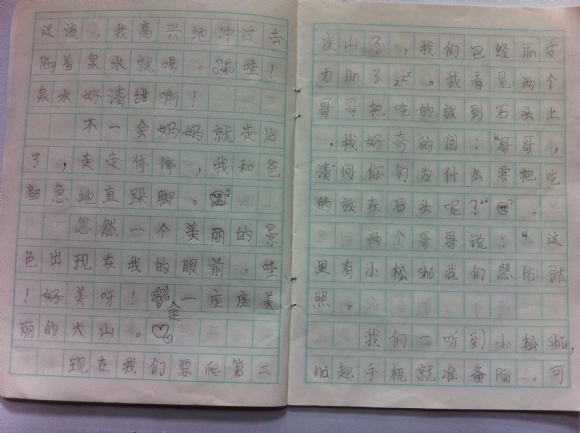 没流，我高兴地冲过去
着泉水就喝。哇！
泉水好清甜啊！
不一会妈妈就走
了，走走停停，我和爸
都急地直跺脚。
忽然一个美丽的景
色出现在我的眼前。哇
！好美呀！一座座美
丽的大山。
现在我们要爬第二
座山了，我们已经jin皮
力jin了。我看见两个
哥哥把吃的放到石头上
，我好奇的问：“哥哥，
请问你们为什么要把吃
的放在石头呢？”。
两个哥哥说：“这
里有小松shǔ我们想
照。
我们一听到小松shǔ，
ná起手机就准备。可